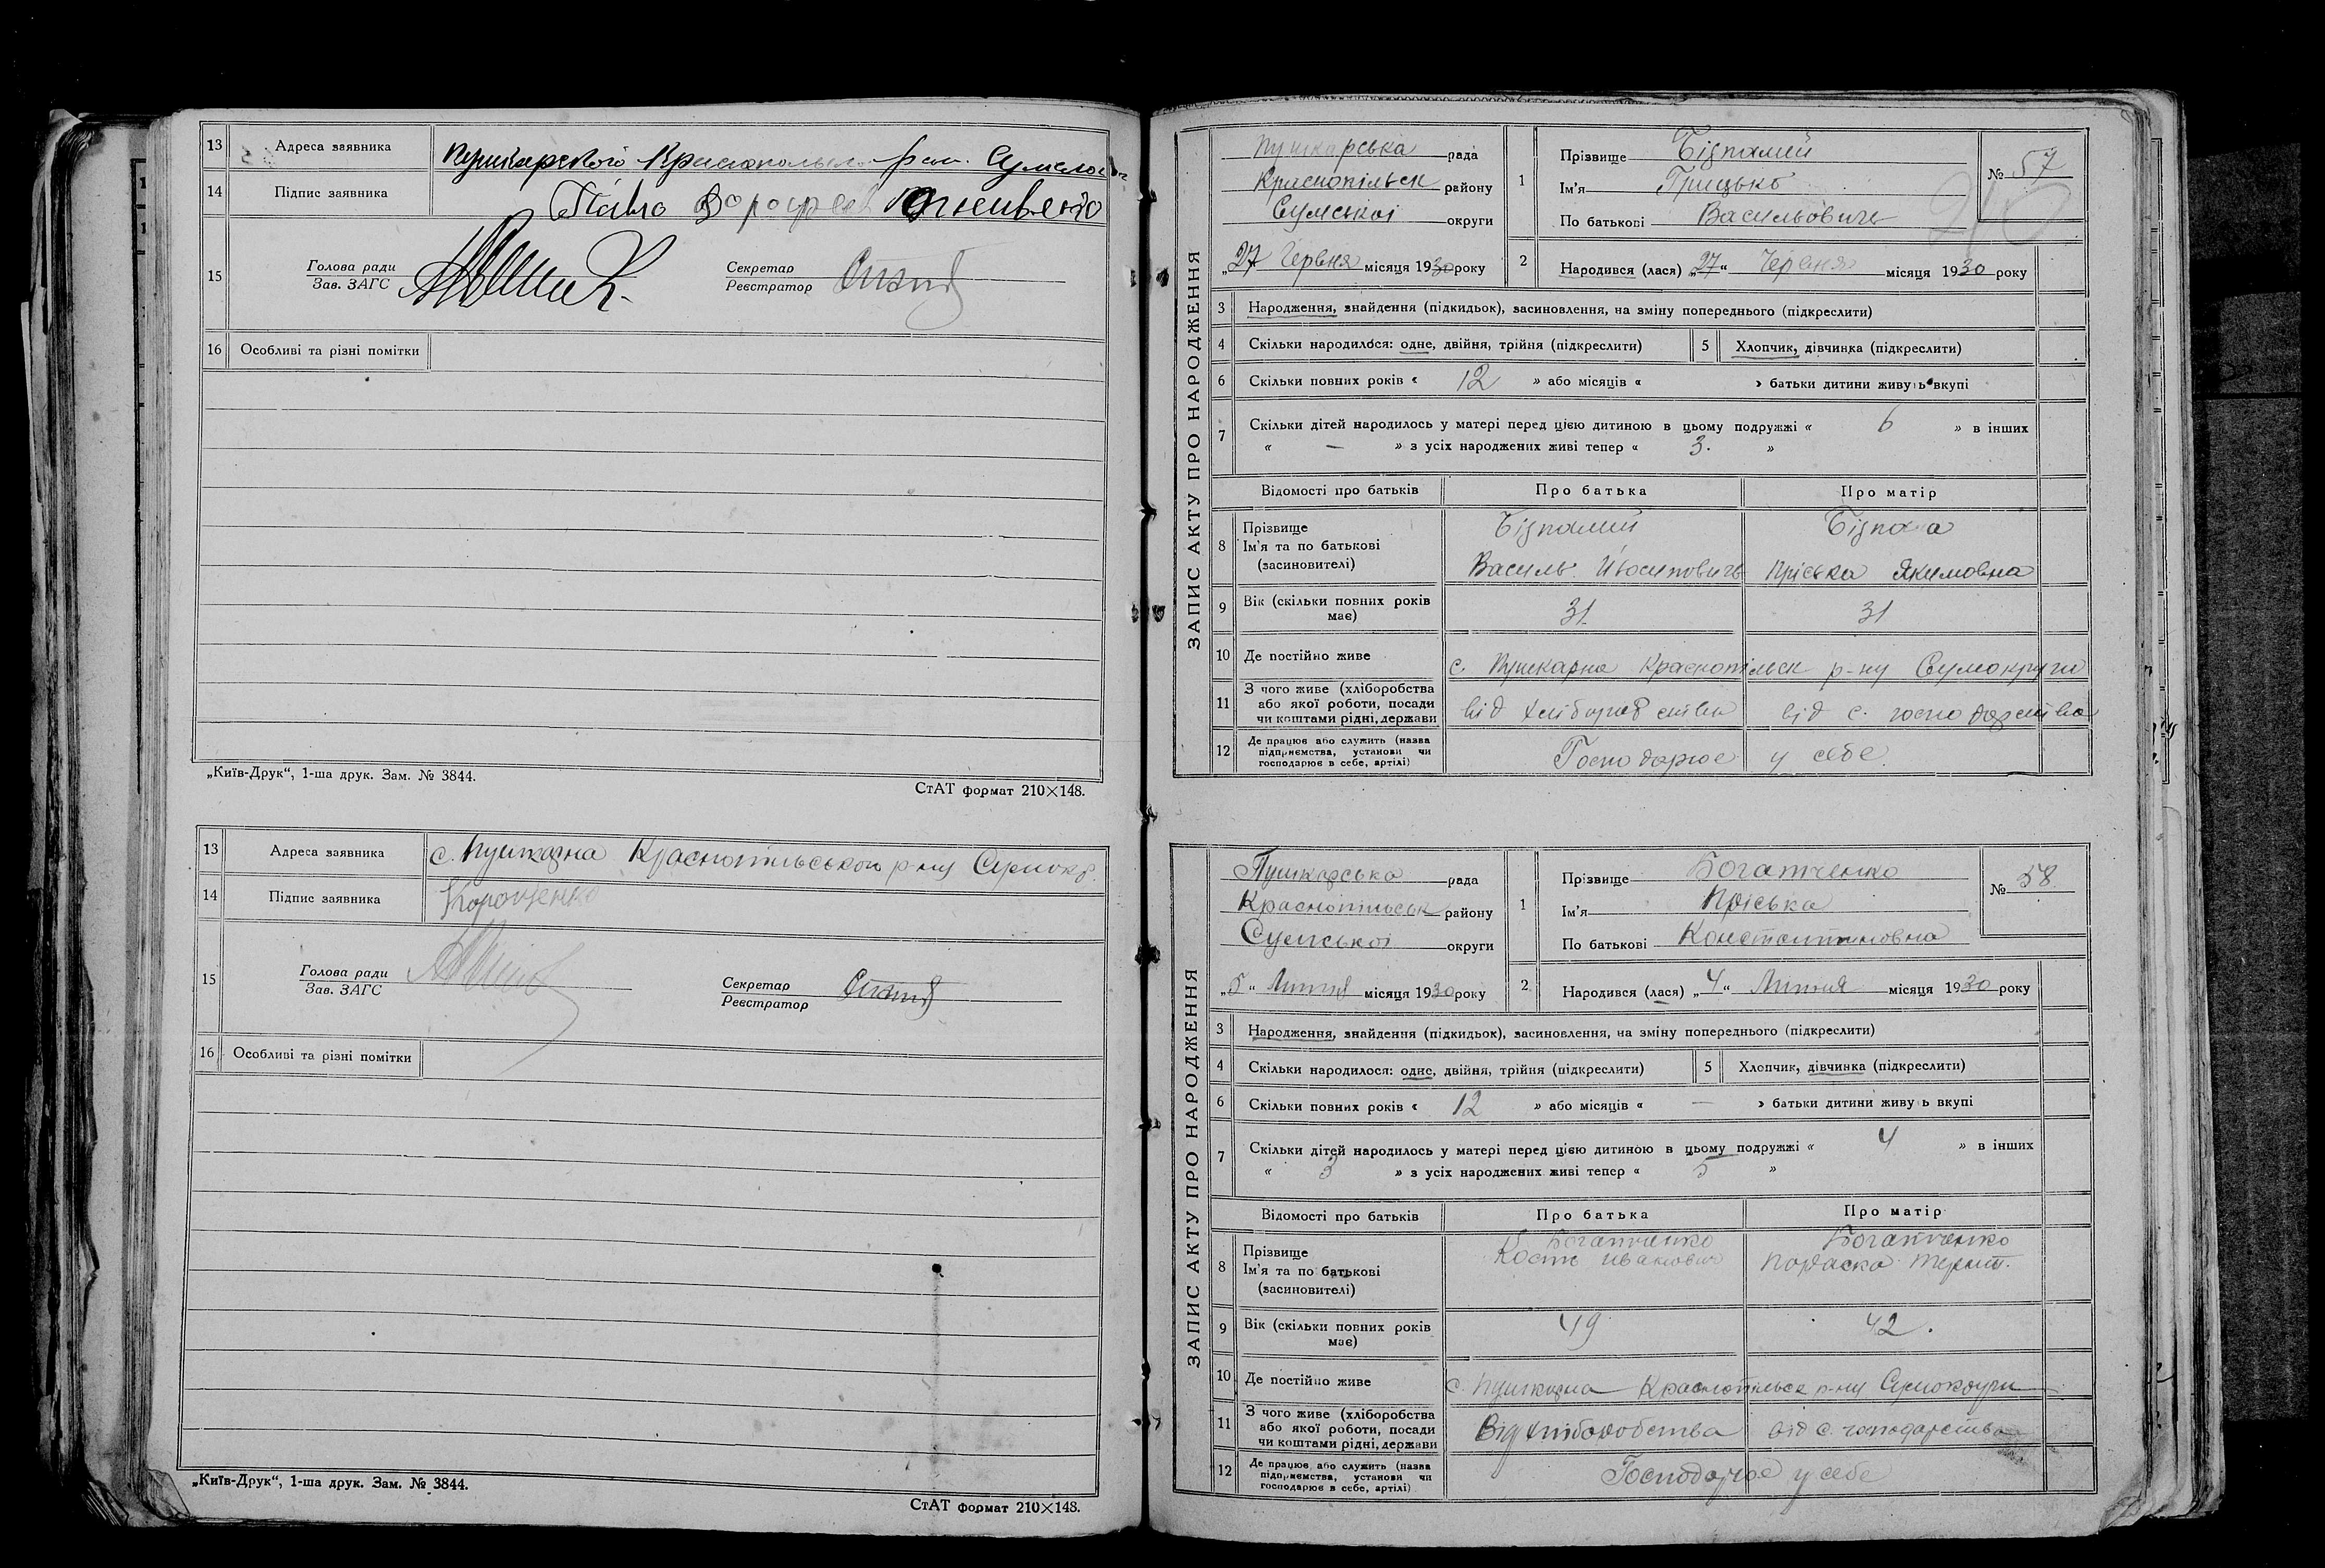 13 Адреса заявника
14 Підпис заявника
15 Голова ради Секретар
Зав. ЗАГС Реєстратор
16 Особливі та різні помітки
„Київ-Друк“, 1-ша друк. Зам. № 3844.
СтАТ формат 210×148.
13 Адреса заявника с. Пушкарна Краснопільського р-ну
14 Підпис заявника
15 Голова ради Секретар
Зав. ЗАГС Реєстратор
16 Особливі та різні помітки
„Київ-Друк“, 1-ша друк. Зам. № 3844.
СтАТ формат 210×148.
ЗАПИС АКТУ ПРО НАРОДЖЕННЯ
Пушкарська рада
Краснопільськ району
Сумської округи
„27 Червня місяця 1930 року
1 Прізвище
Ім'я Грицько
По батькові Васильович
№ 57
2 Народився (лася) „27“ Червня місяця 1930 року
3 Народження, знайдення (підкидьок), засиновлення, на зміну попереднього (підкреслити)
4 Скільки народилося: одне, двійня, трійня (підкреслити) 5 Хлопчик, дівчинка (підкреслити)
6 Скільки повних років « 12 » або місяців « » батьки дитини живуть вкупі
7 Скільки дітей народилось у матері перед цією дитиною в цьому подружжі « 6 » в інших
« — » з усіх народжених живі тепер « 3. »
Відомості про батьків Про батька Про матір
8 Прізвище
Ім'я та по батькові Василь Йосипович Пріська Якимовна
(засиновителі)
9 Вік (скільки повних років має) 31 31
10 Де постійно живе с. Пушкарна Краснопільськ р-ну Сумокруги
11 З чого живе (хліборобства
або якої роботи, посади від хліборобства від с. господарства
чи коштами рідні, держави
12 Де працює або служить (назва
підприємства, установи чи Господарює у себе.
господарює в себе, артілі)
ЗАПИС АКТУ ПРО НАРОДЖЕННЯ
Пушкарська рада
Краснопільськ району
Сумської округи
„5“ Липня місяця 1930 року
1 Прізвище Богатченко
Ім'я Пріська
По батькові Константиновна
№ 58
2 Народився (лася) „4“ Липня місяця 1930 року
3 Народження, знайдення (підкидьок), засиновлення, на зміну попереднього (підкреслити)
4 Скільки народилося: одне, двійня, трійня (підкреслити) 5 Хлопчик, дівчинка (підкреслити)
6 Скільки повних років « 12 » або місяців « — » батьки дитини живуть вкупі
7 Скільки дітей народилось у матері перед цією дитиною в цьому подружжі « 4 » в інших
« 3 » з усіх народжених живі тепер « 5 »
Відомості про батьків Про батька Про матір
8 Прізвище Богатченко Богатченко
Ім'я та по батькові Кость Иванович Параска
(засиновителі)
9 Вік (скільки повних років має) 49 42.
10 Де постійно живе с. Пушкарна Краснопільськ р-ну Сумокруги
11 З чого живе (хліборобства
або якої роботи, посади Від хліборобства від с. господарства
чи коштами рідні, держави
12 Де працює або служить (назва
підприємства, установи чи Господарює у себе
господарює в себе, артілі)